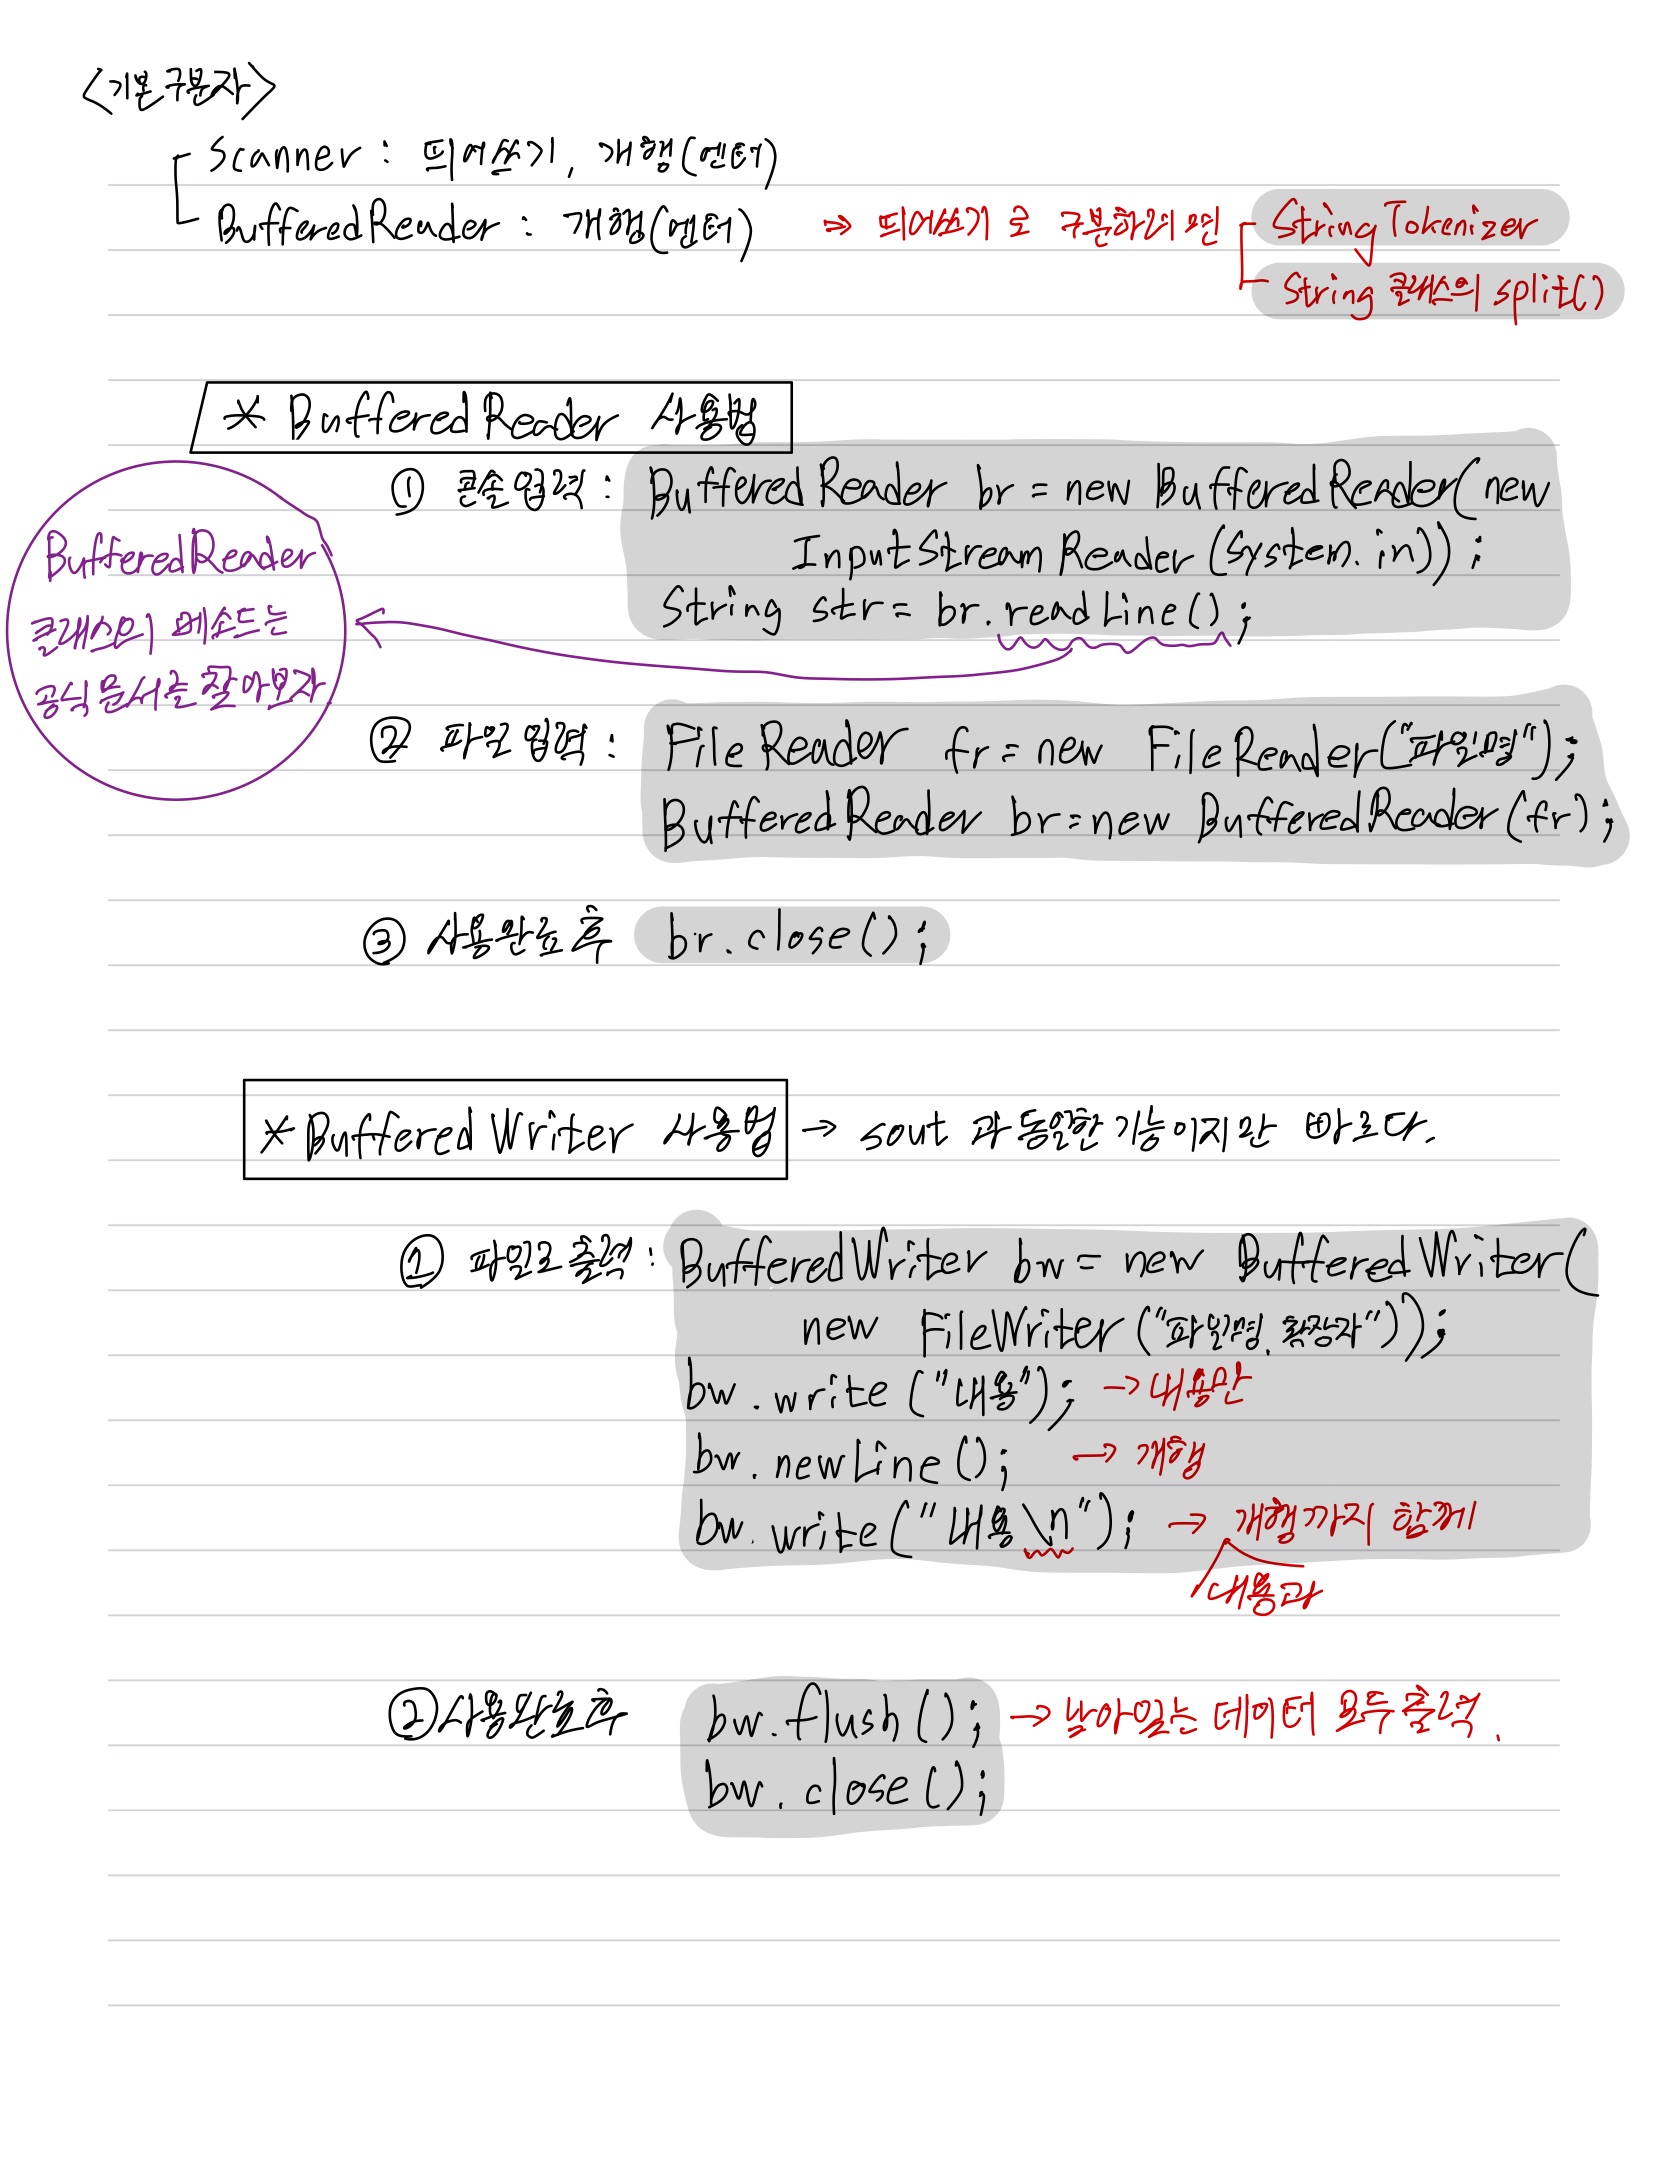 <기본 구분자>
Scanner : 띄어쓰기, 개행(엔터)
BufferedReader : 개행(엔터) → 띄어쓰기로 구분하려면 StringTokenizer
String 클래스의 split()
* BufferedReader 사용법
① 콘솔 입력 : BufferedReader br = new BufferedReader(new
InputStreamReader(System.in));
String str = br.readLine();
BufferedReader
클래스의 메소드는
공식문서를 찾아보자
② 파일 입력 : FileReader fr = new FileReader("파일명");
BufferedReader br = new BufferedReader(fr);
③ 사용완료 후 br.close();
* BufferedWriter 사용법 → sout 과 동일한 기능이지만 빠르다.
① 파일로 출력 : BufferedWriter bw = new BufferedWriter(
new FileWriter("파일명.확장자"));
bw.write("내용"); → 내용만
bw.newLine(); → 개행
bw.write("내용\n"); → 개행까지 함께
내용과
② 사용완료 후 bw.flush(); → 남아있는 데이터 모두 출력.
bw.close();